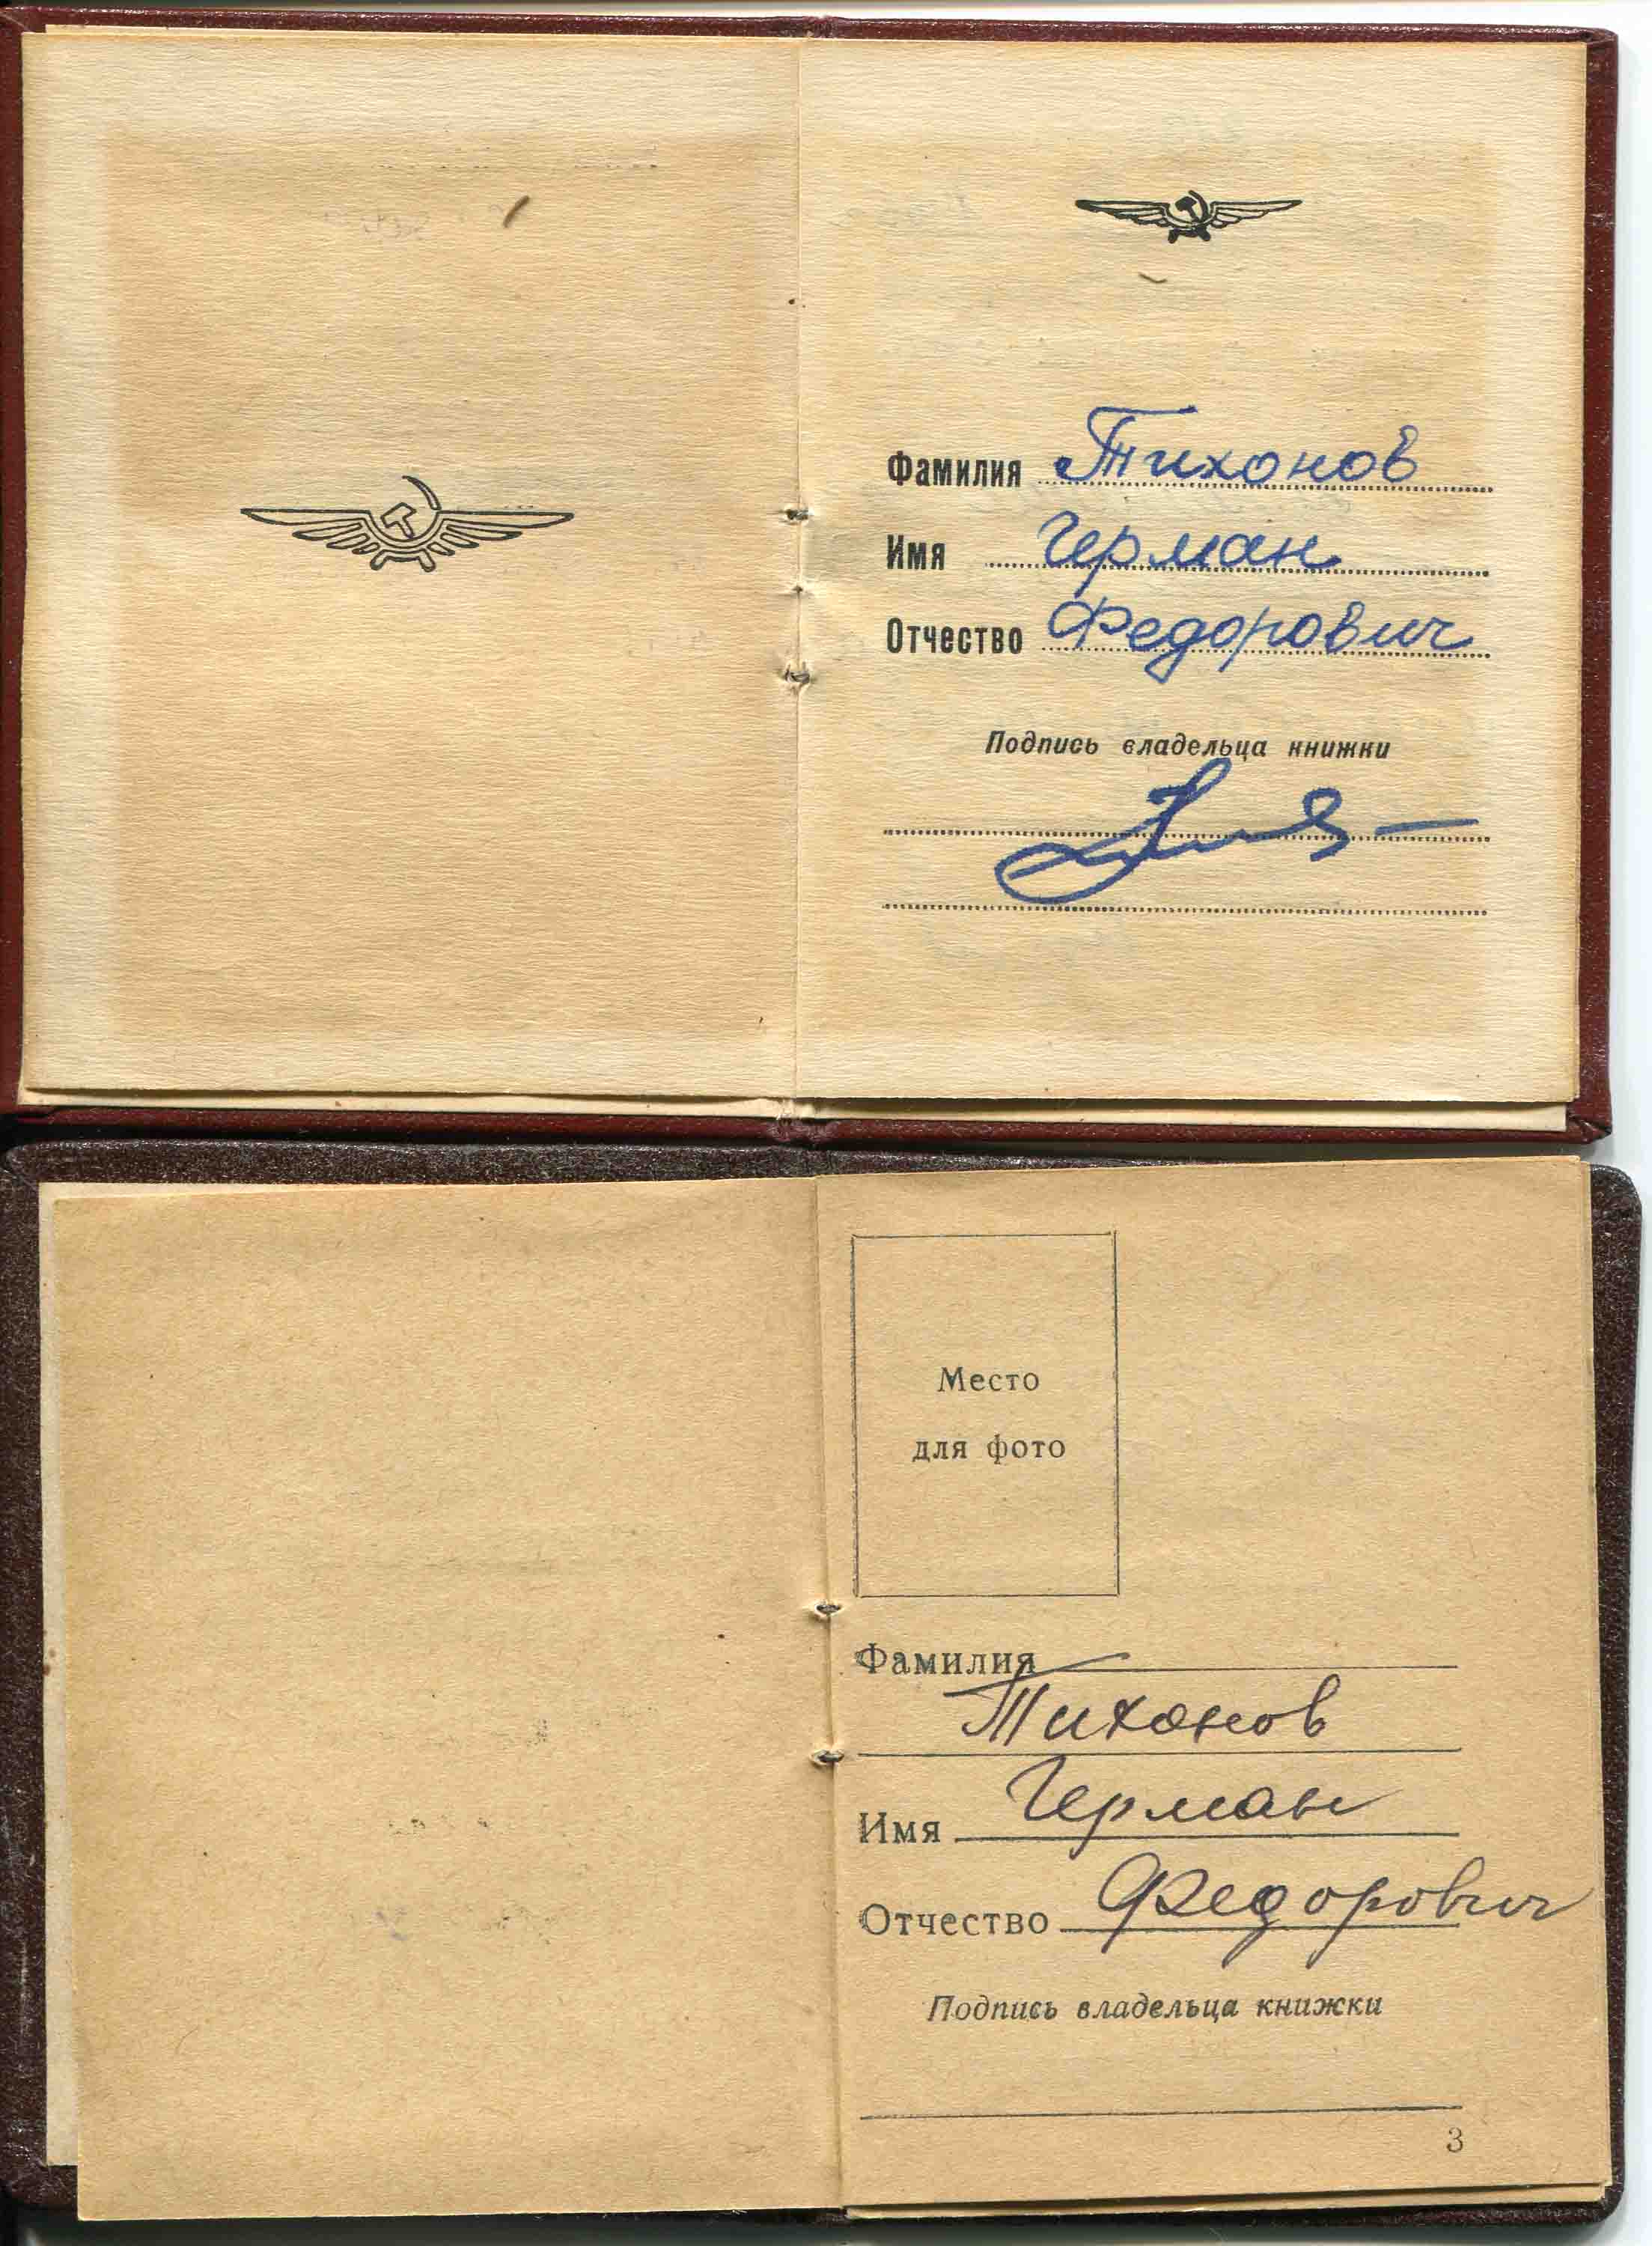 Фамилия Тихонов
Имя Герман
Отчество Федорович
Подпись владельца книжки
Место
для фото
Фамилия
Тихонов
Имя Герман
Отчество Федорович
Подпись владельца книжки
3